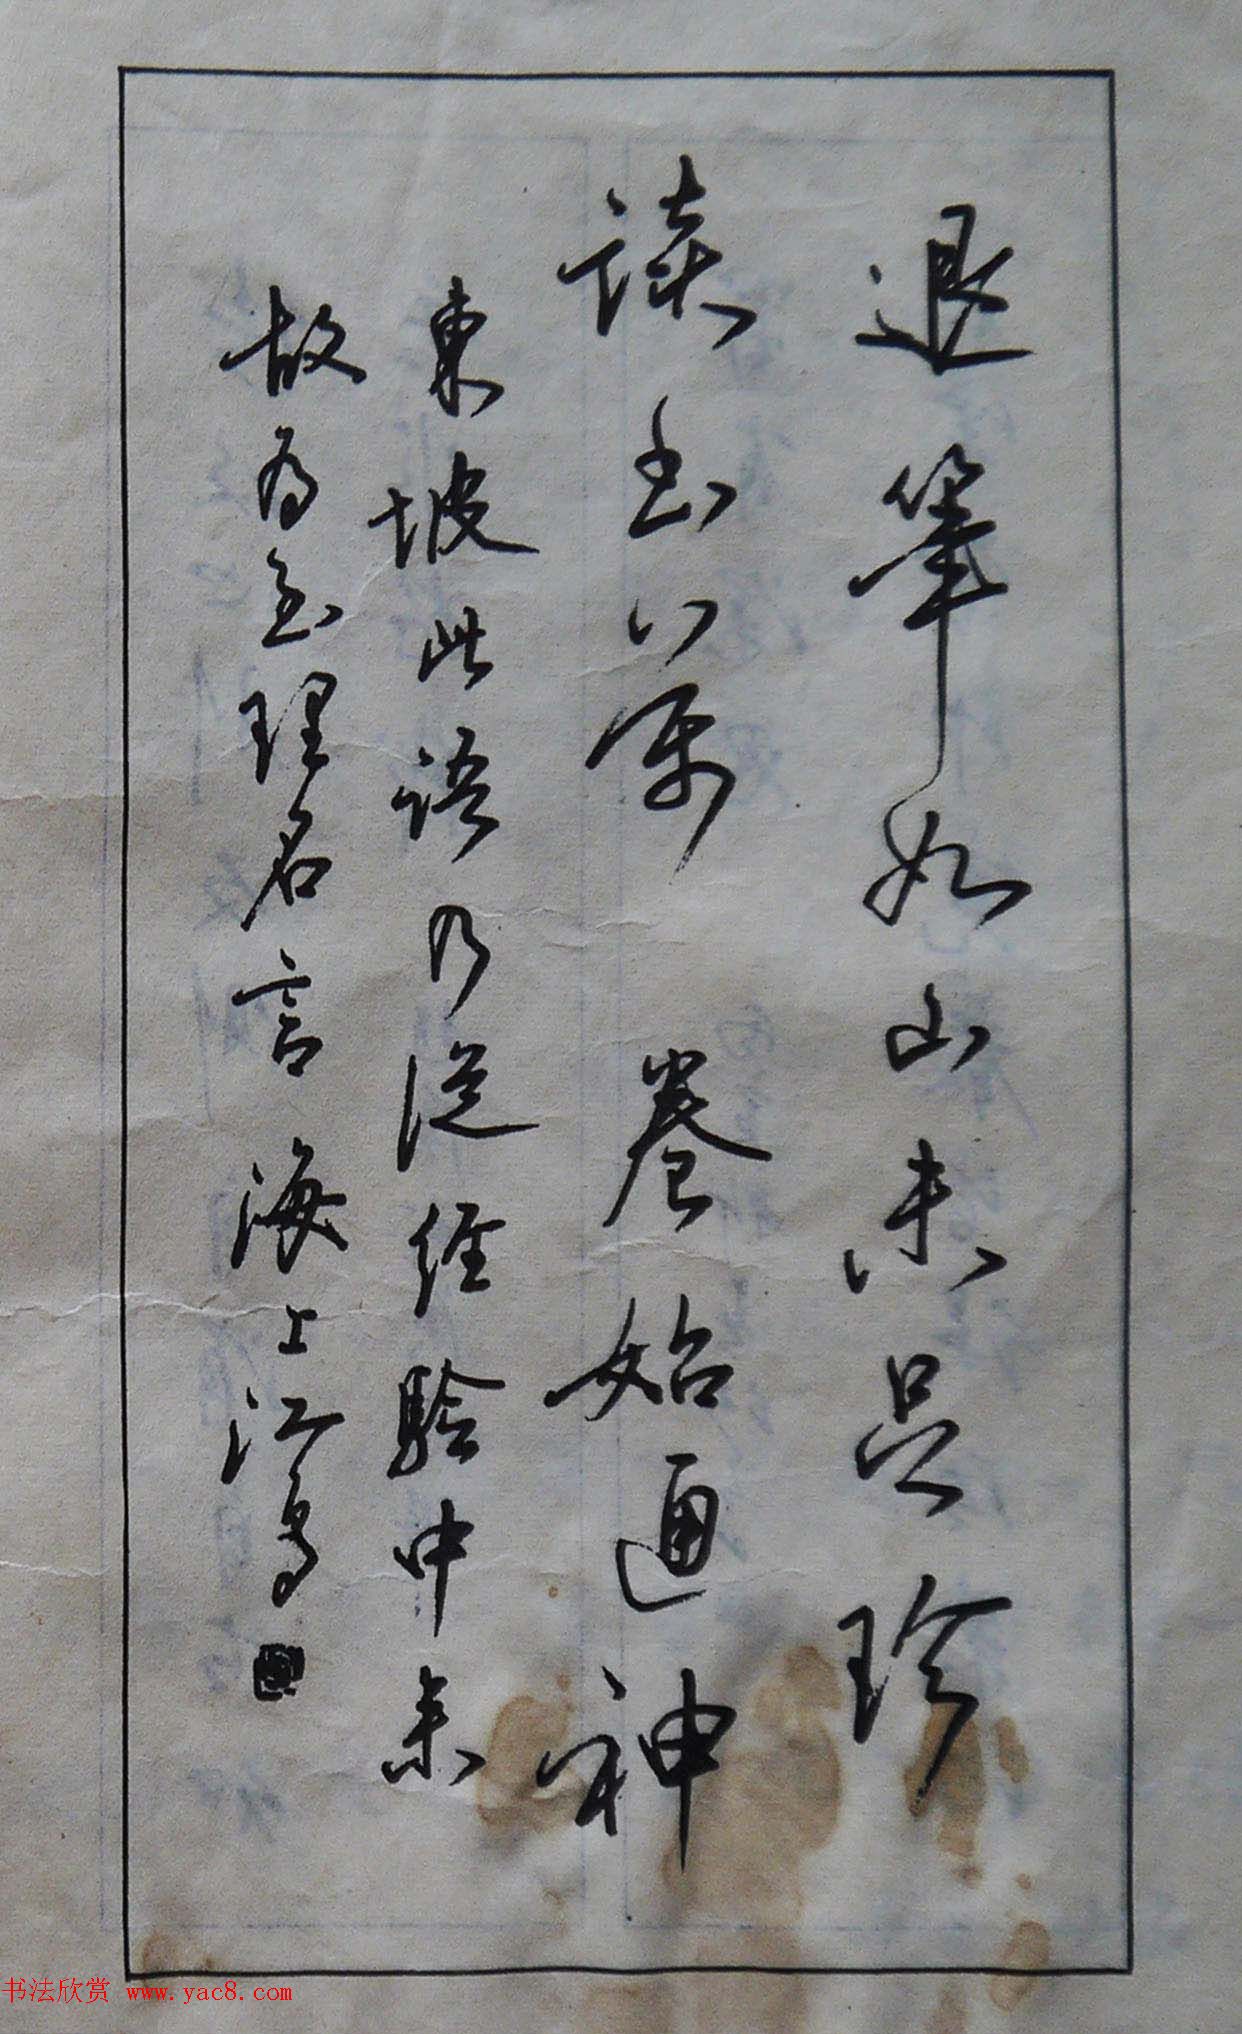 退筆如山未足珍
讀書八萬卷始通神
東坡此語乃從經驗中來
故為至理名言 海上江鳥
书法欣赏 www.yac8.com